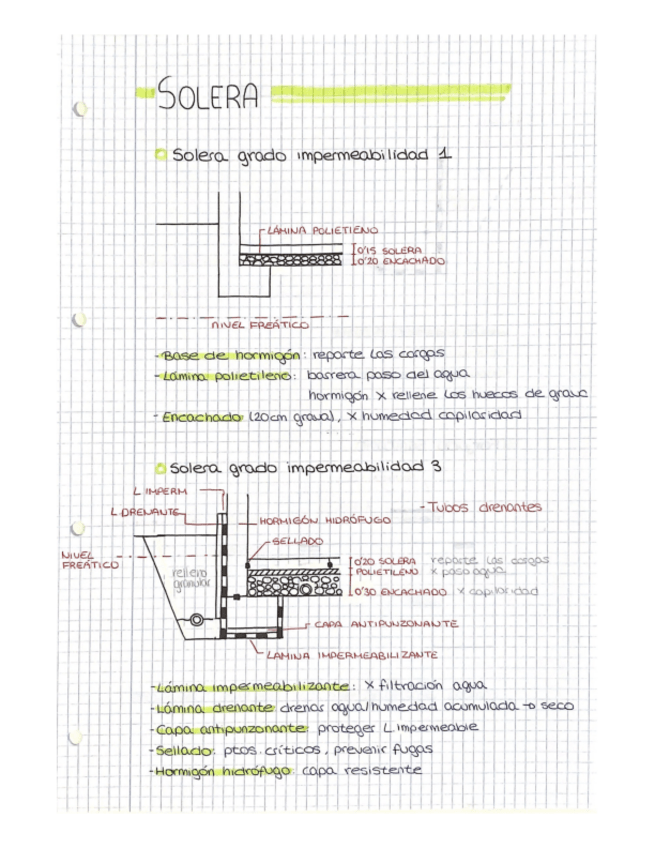 SOLERA
Solera grado impermeabilidad 1
LÁMINA POLIETIENO
0'15 SOLERA
0'20 ENCACHADO
NIVEL FREÁTICO
- Base de hormigón: reparte las cargas
- Lámina polietileno: barrera paso del agua
hormigón x rellene los huecos de grava
- Encachado (20cm grava), x humedad capilaridad
Solera grado impermeabilidad 3
L IMPERM
L DRENANTE
HORMIGÓN HIDRÓFUGO
- Tubos drenantes
SELLADO
NIVEL
FREÁTICO
relleno
granular
0'20 SOLERA reparte las cargas
POLIETILENO x paso agua
0'30 ENCACHADO x capilaridad
CAPA ANTIPUNZONANTE
LÁMINA IMPERMEABILIZANTE
- Lámina impermeabilizante: x filtración agua
- Lámina drenante: drenar agua/humedad acumulada → seco
- Capa antipunzonante: proteger L impermeable
- Sellado: ptos. críticos, prevenir fugas
- Hormigón hidrófugo: capa resistente